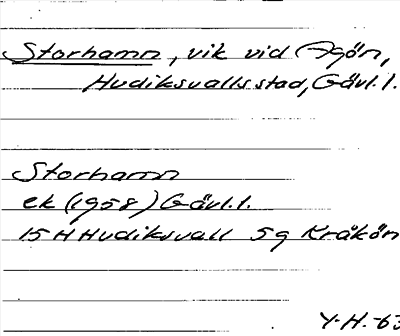 Storhamn, vik vid Agön,
Hudiksvalls stad, Gävl.l.
Storhamn
ek (1958) Gävl.l.
15H Hudiksvall 5g Kråkön
Y-H. -63